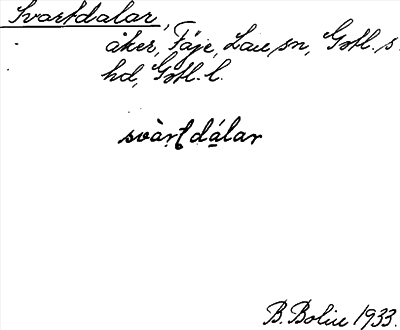 Svartdalar,
åker, Fäje, Lau sn, Gotl. s.
hd, Gotl. l.
svàrt dálar
B. Bolin 1933.